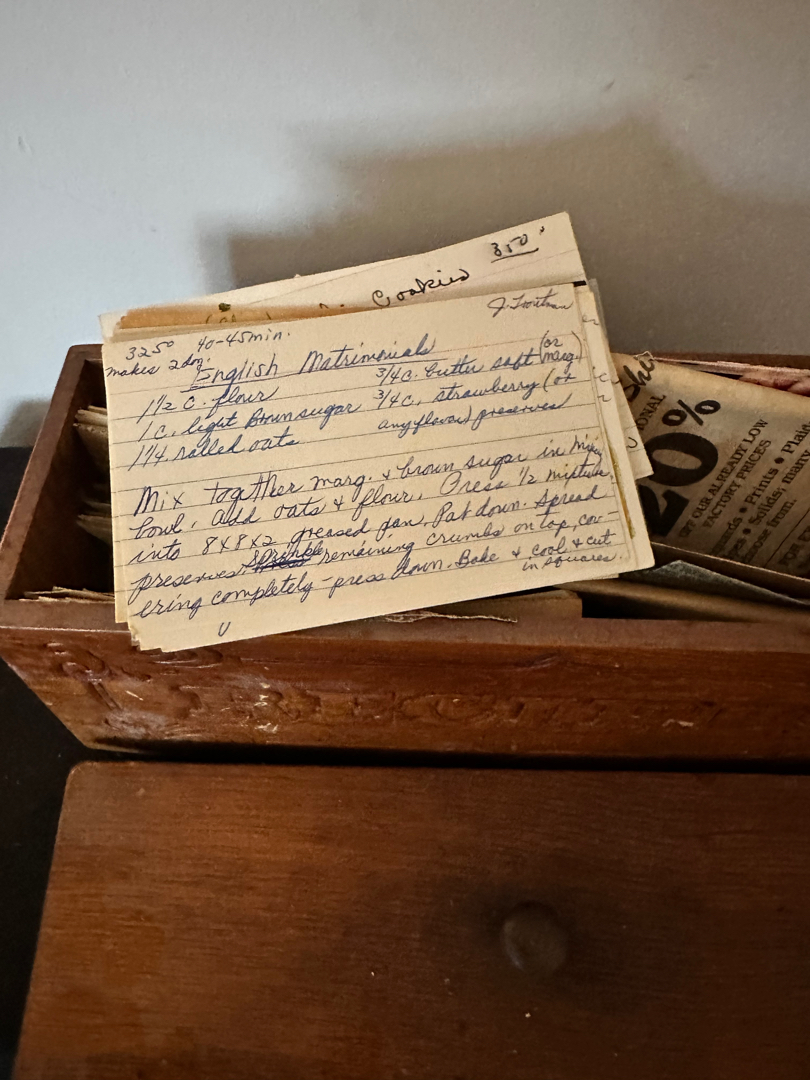 350°
Cookies
J. Troutman
325° 40-45 min.
makes 2 doz.
English Matrimonials
1 1/2 c. flour
1 c. light Brown sugar
1 1/4 rolled oats
3/4 c. butter soft (or marg.)
3/4 c. strawberry (or
any flavor) preserves
Mix together marg. & brown sugar in mixing
bowl. Add oats & flour. Press 1/2 mixture
into 8x8x2 greased pan. Pat down. Spread
preserves. Sprinkle remaining crumbs on top, cov-
ering completely - press down. Bake & cool & cut
in squares.
She
20%
OFF OUR ALREADY LOW
FACTORY PRICES
• Prints • Plaids
• Solids; many
from.
RECIPES